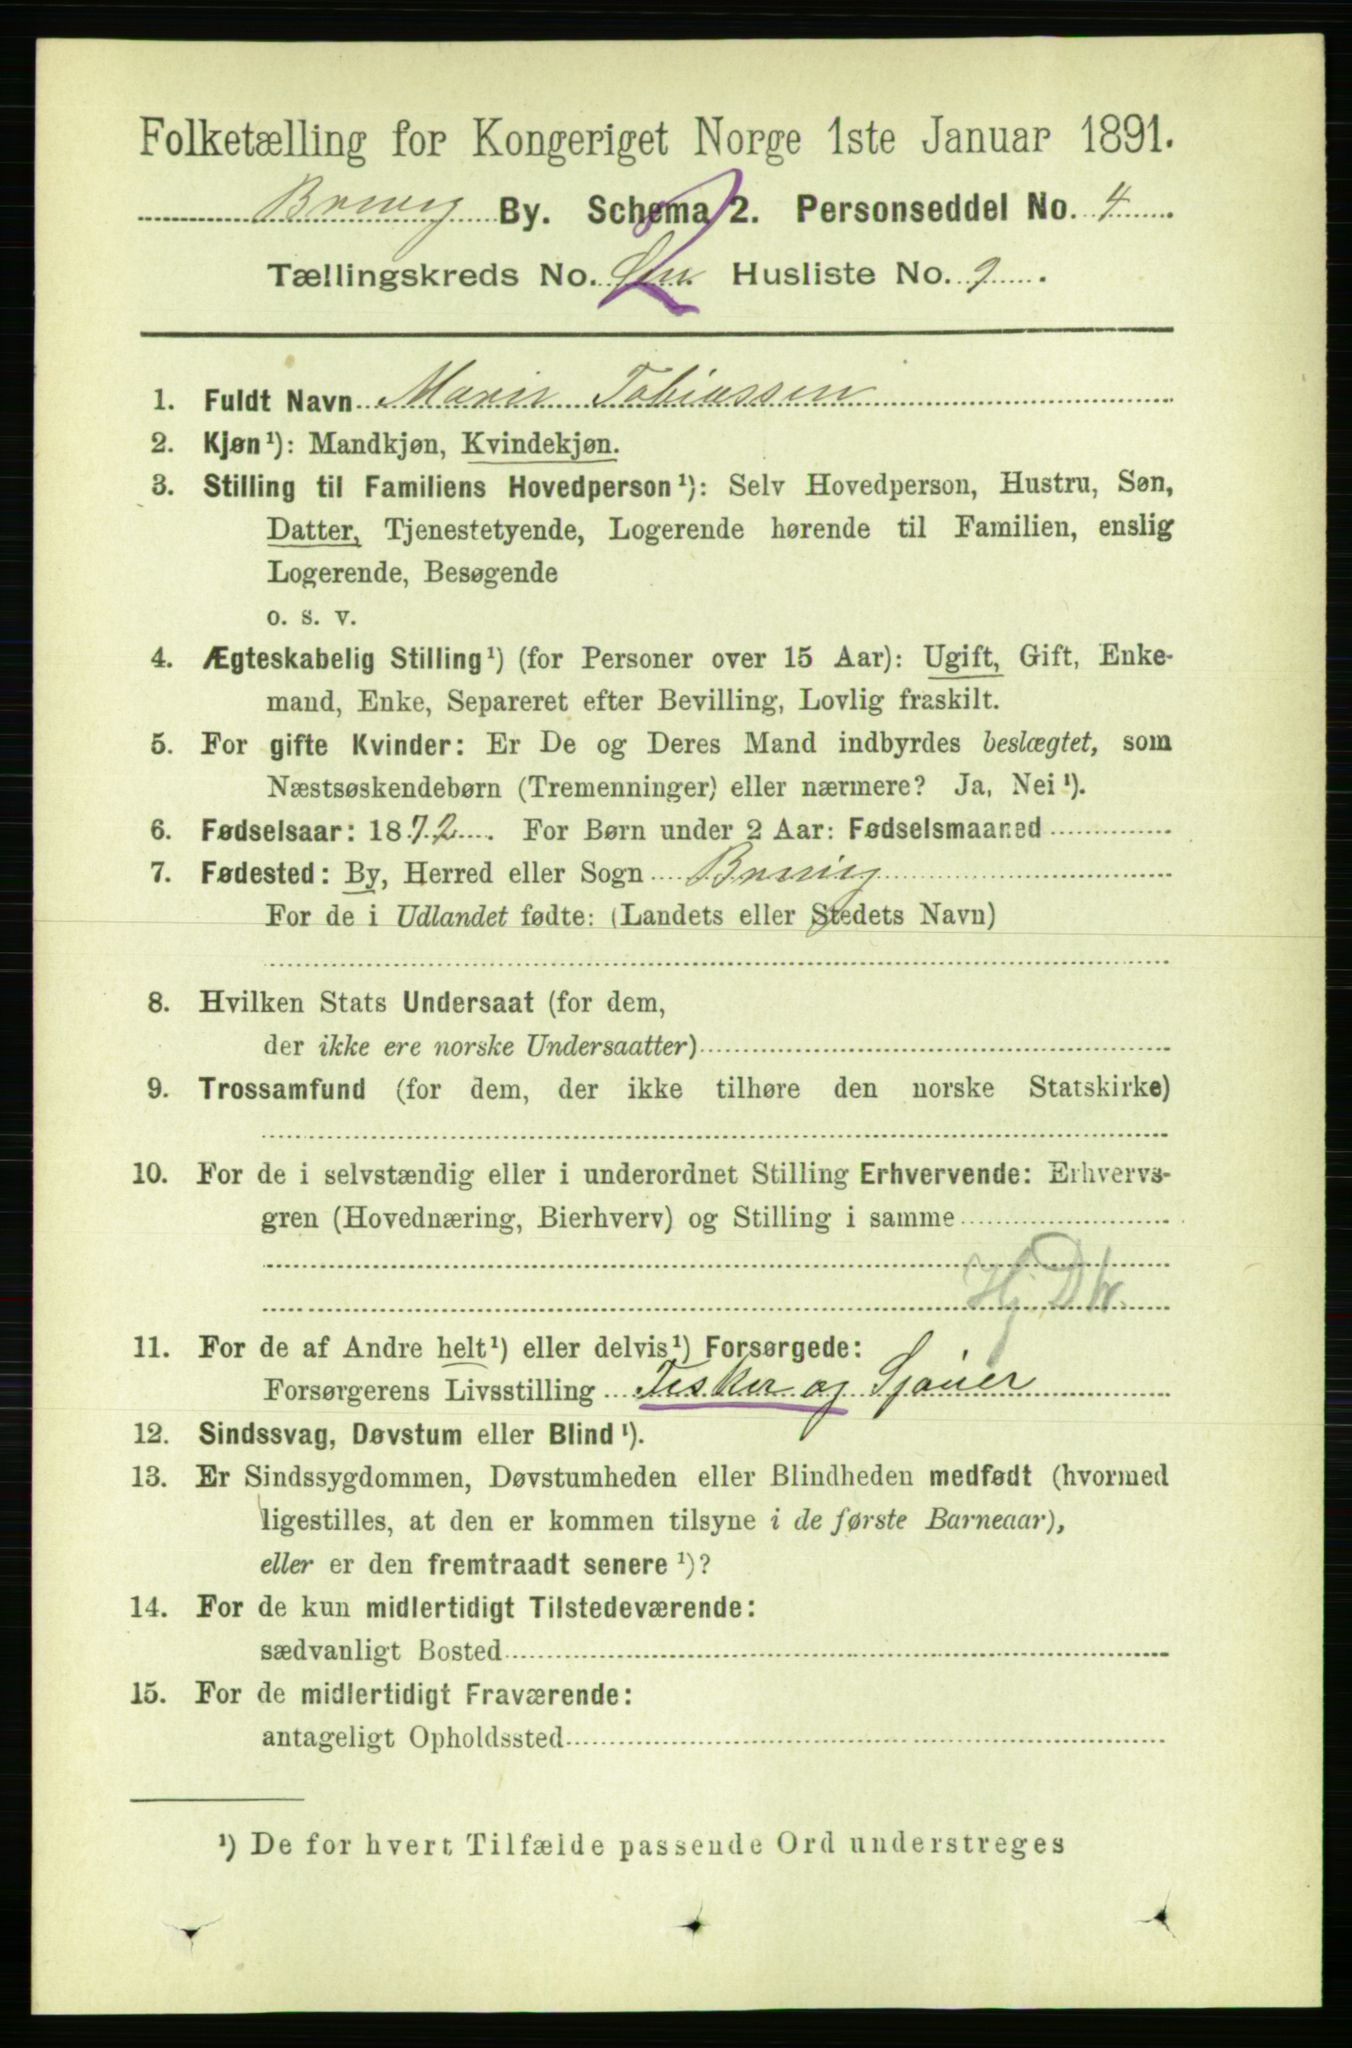 Folketælling for Kongeriget Norge 1ste Januar 1891.
Brevig By. Schema 2. Personseddel No. 4
Tællingskreds No. Husliste No. 9.
1. Fuldt Navn Maren Tobiassen
2. Kjøn¹): Mandkjøn, Kvindekjøn.
3. Stilling til Familiens Hovedperson¹): Selv Hovedperson, Hustru, Søn,
Datter, Tjenestetyende, Logerende hørende til Familien, enslig
Logerende, Besøgende
o. s. v.
4. Ægteskabelig Stilling¹) (for Personer over 15 Aar): Ugift, Gift, Enke-
mand, Enke, Separeret efter Bevilling, Lovlig fraskilt.
5. For gifte Kvinder: Er De og Deres Mand indbyrdes beslægtet, som
Næstsøskendebørn (Tremenninger) eller nærmere? Ja, Nei¹).
6. Fødselsaar: 1872. For Børn under 2 Aar: Fødselsmaaned
7. Fødested: By, Herred eller Sogn Brevig
For de i Udlandet fødte: (Landets eller Stedets Navn)
8. Hvilken Stats Undersaat (for dem,
der ikke ere norske Undersaatter)
9. Trossamfund (for dem, der ikke tilhøre den norske Statskirke)
10. For de i selvstændig eller i underordnet Stilling Erhvervende: Erhvervs-
gren (Hovednæring, Bierhverv) og Stilling i samme
Hj. Dtr.
11. For de af Andre helt¹) eller delvis¹) Forsørgede:
Forsørgerens Livsstilling Fisker og Sjauer
12. Sindssvag, Døvstum eller Blind¹).
13. Er Sindssygdommen, Døvstumheden eller Blindheden medfødt (hvormed
ligestilles, at den er kommen tilsyne i de første Barneaar),
eller er den fremtraadt senere¹)?
14. For de kun midlertidigt Tilstedeværende:
sædvanligt Bosted
15. For de midlertidigt Fraværende:
antageligt Opholdssted
¹) De for hvert Tilfælde passende Ord understreges